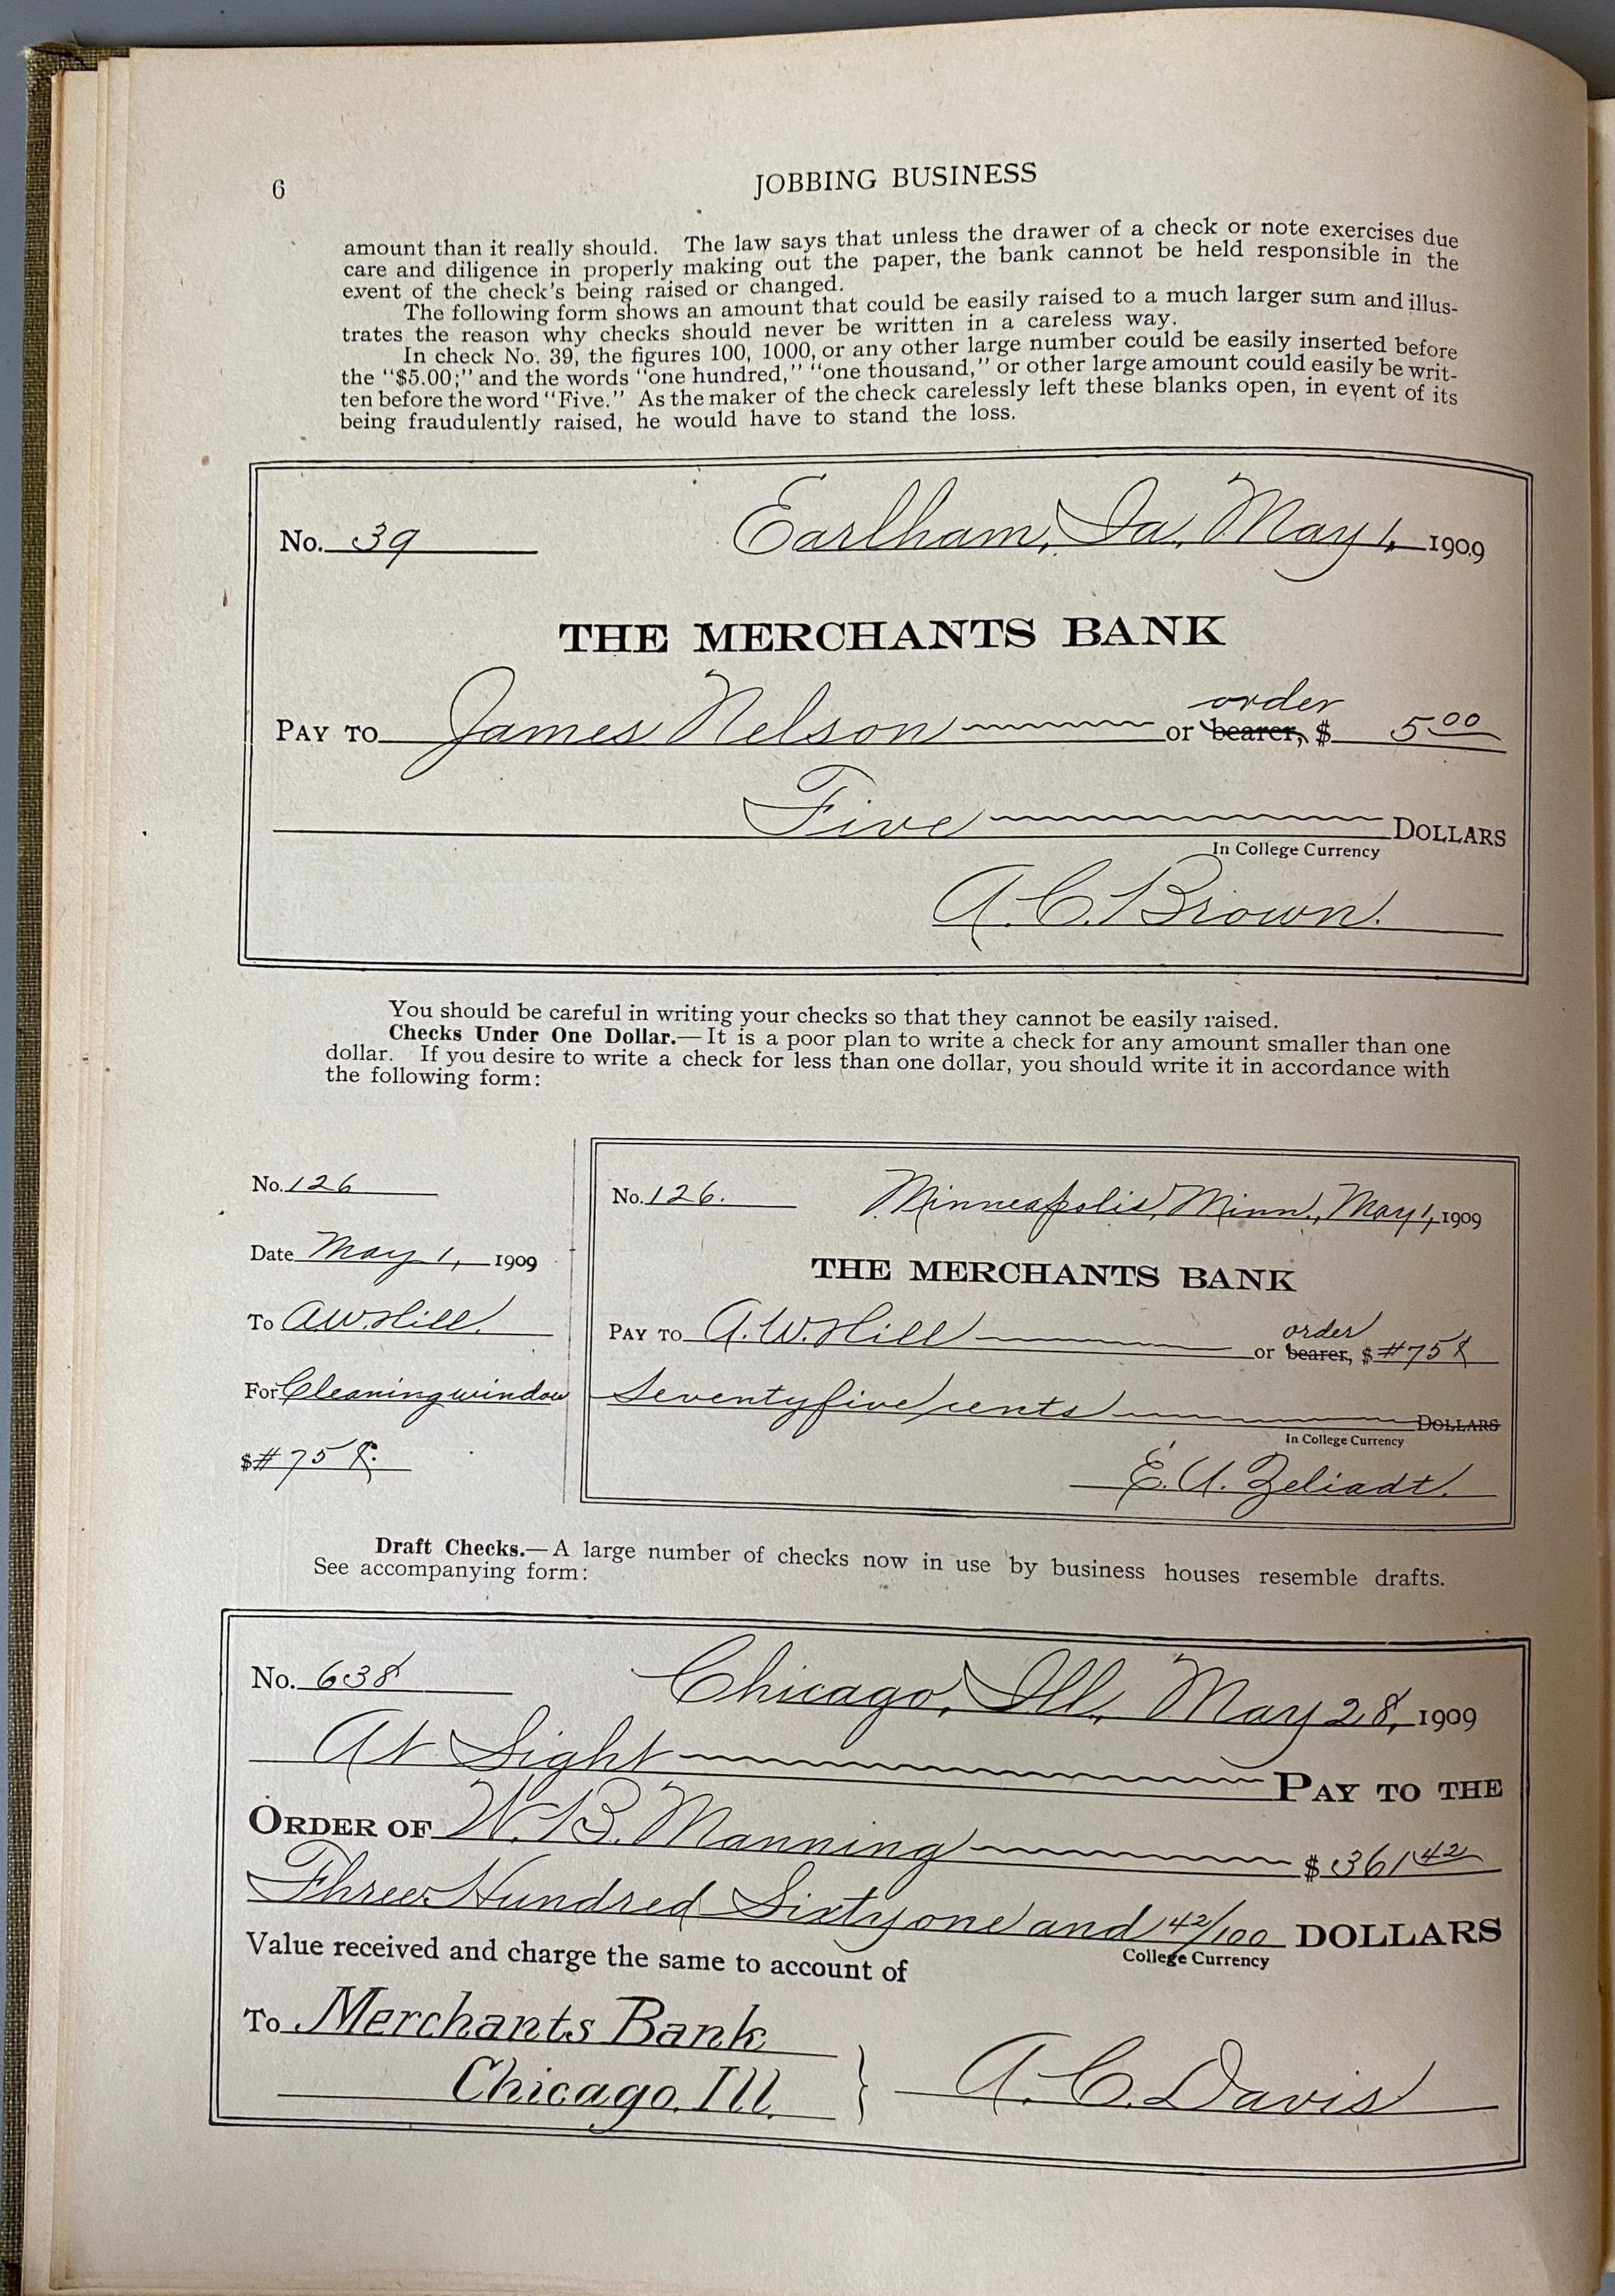 6
JOBBING BUSINESS
amount than it really should. The law says that unless the drawer of a check or note exercises due
care and diligence in properly making out the paper, the bank cannot be held responsible in the
event of the check's being raised or changed.
The following form shows an amount that could be easily raised to a much larger sum and illus-
trates the reason why checks should never be written in a careless way.
In check No. 39, the figures 100, 1000, or any other large number could be easily inserted before
the "$5.00;" and the words "one hundred," "one thousand," or other large amount could easily be writ-
ten before the word "Five." As the maker of the check carelessly left these blanks open, in event of its
being fraudulently raised, he would have to stand the loss.
No. 39 Earlham, Ia., May 1, 1909
THE MERCHANTS BANK
order
PAY TO James Nelson or bearer, $ 5 00
Five DOLLARS
In College Currency
A. C. Brown.
You should be careful in writing your checks so that they cannot be easily raised.
Checks Under One Dollar.—It is a poor plan to write a check for any amount smaller than one
dollar. If you desire to write a check for less than one dollar, you should write it in accordance with
the following form:
No. 126
Date May 1, 1909
To A.W. Hill.
For Cleaning window
$ # 75 ¢.
No. 126. Minneapolis, Minn., May 1, 1909
THE MERCHANTS BANK
order
PAY TO A. W. Hill or bearer, $ # 75 ¢
Seventyfive cents DOLLARS
In College Currency
E. U. Zeliadt.
Draft Checks.—A large number of checks now in use by business houses resemble drafts.
See accompanying form:
No. 638 Chicago, Ill., May 28, 1909
At Sight PAY TO THE
ORDER OF W. B. Manning $ 361 42
Three Hundred Sixty one and 42/100 DOLLARS
College Currency
Value received and charge the same to account of
To Merchants Bank
Chicago. Ill.
A. C. Davis